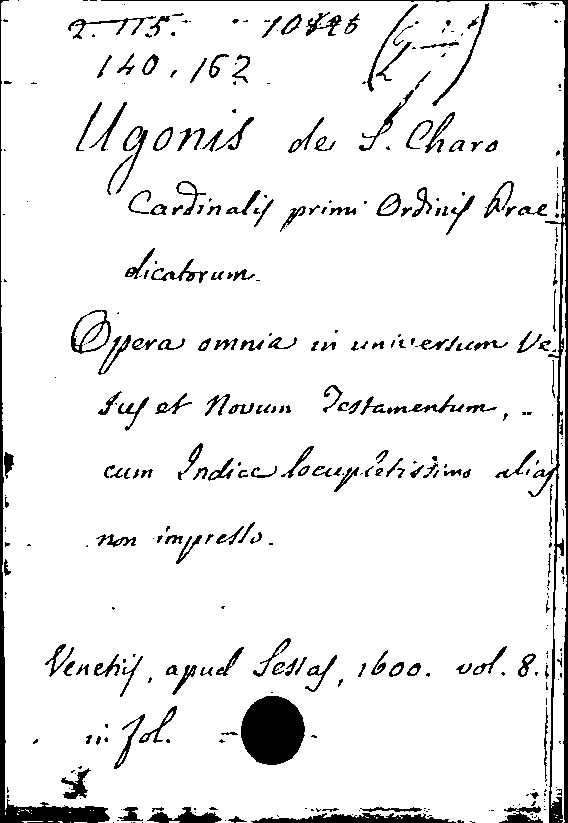 2. 115.
140. 162
Ugonis de S. Charo
Cardinalis primi Ordinis Prae
dicatorum.
Opera omnia in universum Ve
tus et Novum Testamentum,
cum Indice locupletissimo alias
non impresso.
Venetiis, apud Sessas, 1600. vol. 8.
in fol.